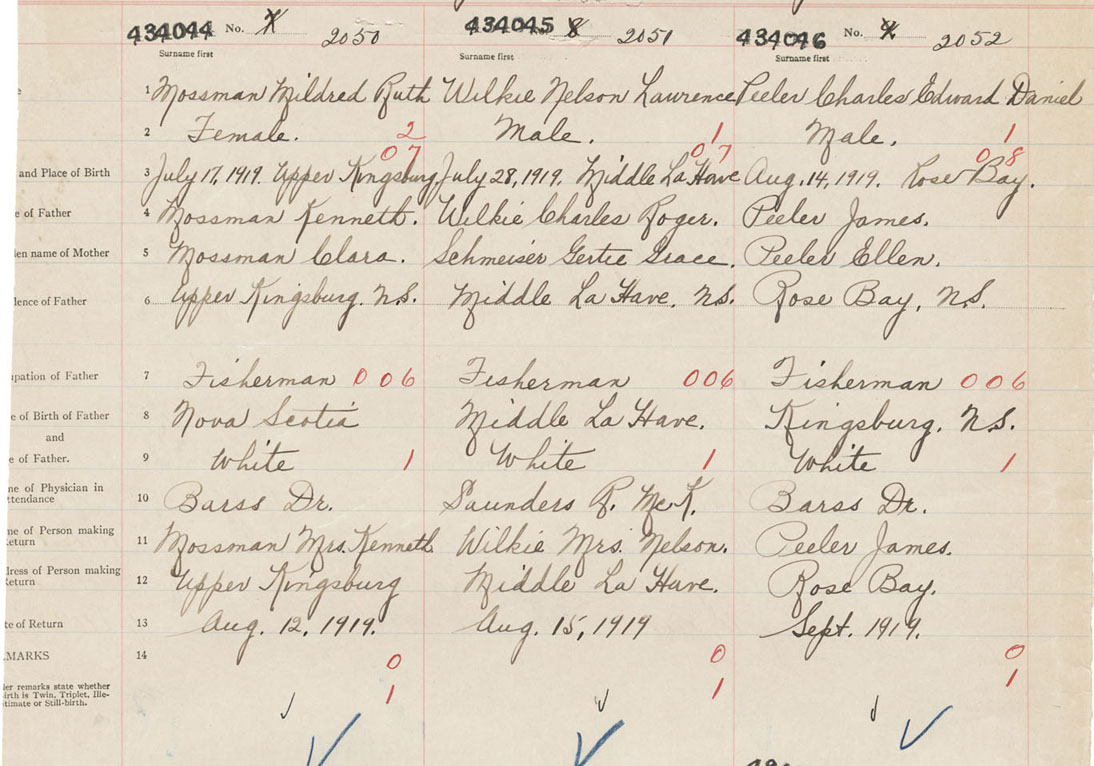 434044 No. 7 2050 434045 8 2051 434046 No. 9 2052
Surname first Surname first Surname first
e 1 Mossman Mildred Ruth Wilkie Nelson Laurence Peeler Charles Edward Daniel
2 Female. 2 Male. 1 Male. 1
07 07 08
and Place of Birth 3 July 17, 1919. Upper Kingsburg, July 28, 1919. Middle La Have Aug. 14, 1919. Rose Bay.
e of Father 4 Mossman Kenneth. Wilkie Charles Roger. Peeler James.
den name of Mother 5 Mossman Clara. Schmeiser Gertie Grace. Peeler Ellen.
dence of Father 6 Upper Kingsburg. N.S. Middle La Have. N.S. Rose Bay, N.S.
upation of Father 7 Fisherman 006 Fisherman 006 Fisherman 006
e of Birth of Father 8 Nova Scotia Middle La Have. Kingsburg. N.S.
and
e of Father. 9 White 1 White 1 White 1
me of Physician in
ttendance 10 Barss Dr. Saunders R. McK. Barss Dr.
me of Person making
Return 11 Mossman Mrs. Kenneth Wilkie Mrs. Nelson. Peeler James.
dress of Person making
Return 12 Upper Kingsburg Middle La Have. Rose Bay.
te of Return 13 Aug. 12, 1919. Aug. 15, 1919 Sept. 1919.
MARKS 14 0 0 0
der remarks state whether
irth is Twin, Triplet, Ille-
timate or Still-birth.
1 1 1